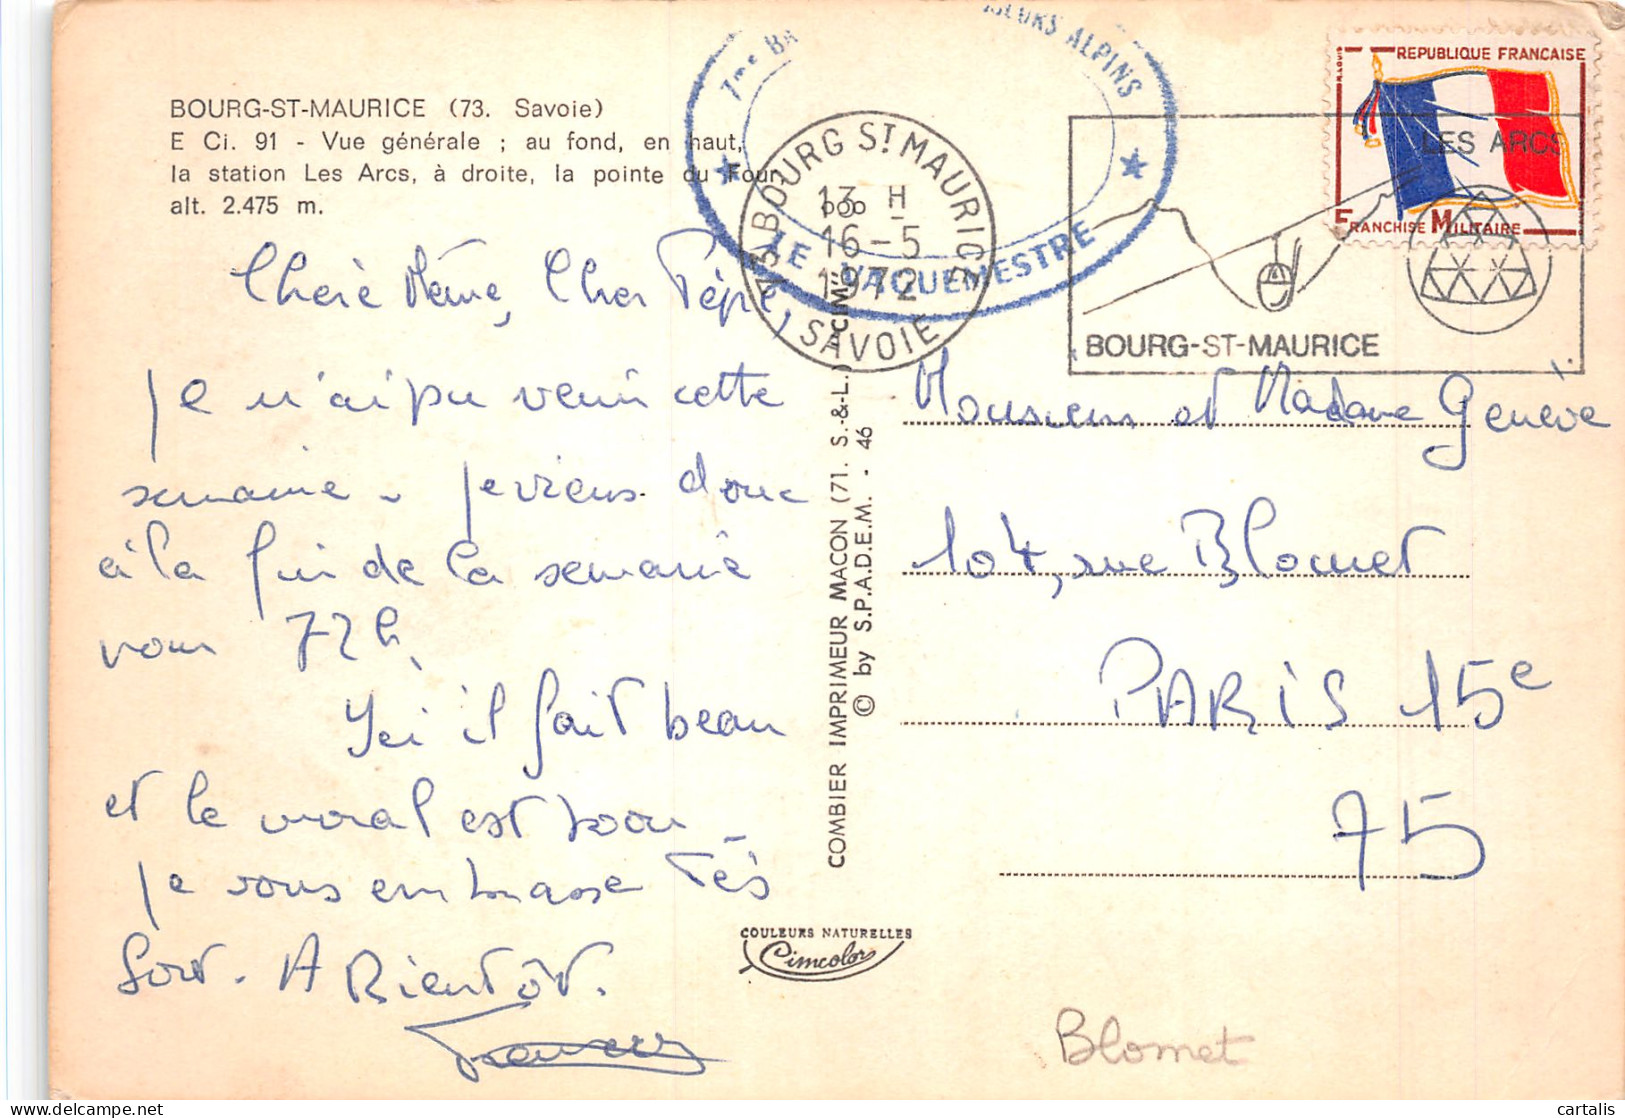 BOURG-ST-MAURICE (73. Savoie)
E Ci. 91 - Vue générale ; au fond, en haut,
la station Les Arcs, à droite, la pointe du Four,
alt. 2.475 m.
Chère Mémé, Cher Pépé,
Je n'ai pu venir cette
semaine - je viens donc
à la fin de la semaine
pour 72h.
Ici il fait beau
et le moral est bon -
Je vous embrasse très
fort. A Bientôt.
7me BA
EURS ALPINS
LE VAGUEMESTRE
BOURG ST MAURICE
13 H
16-5
1972
SAVOIE
LES ARCS
BOURG-ST-MAURICE
REPUBLIQUE FRANÇAISE
FRANCHISE MILITAIRE
COMBIER IMPRIMEUR MACON (71. S.-&-L.) "CIM"
© by S.P.A.D.E.M. - 46
COULEURS NATURELLES
Cimcolor
Monsieur et Madame Genève
104, rue Blomet
PARIS 15e
75
Blomet
cartalis